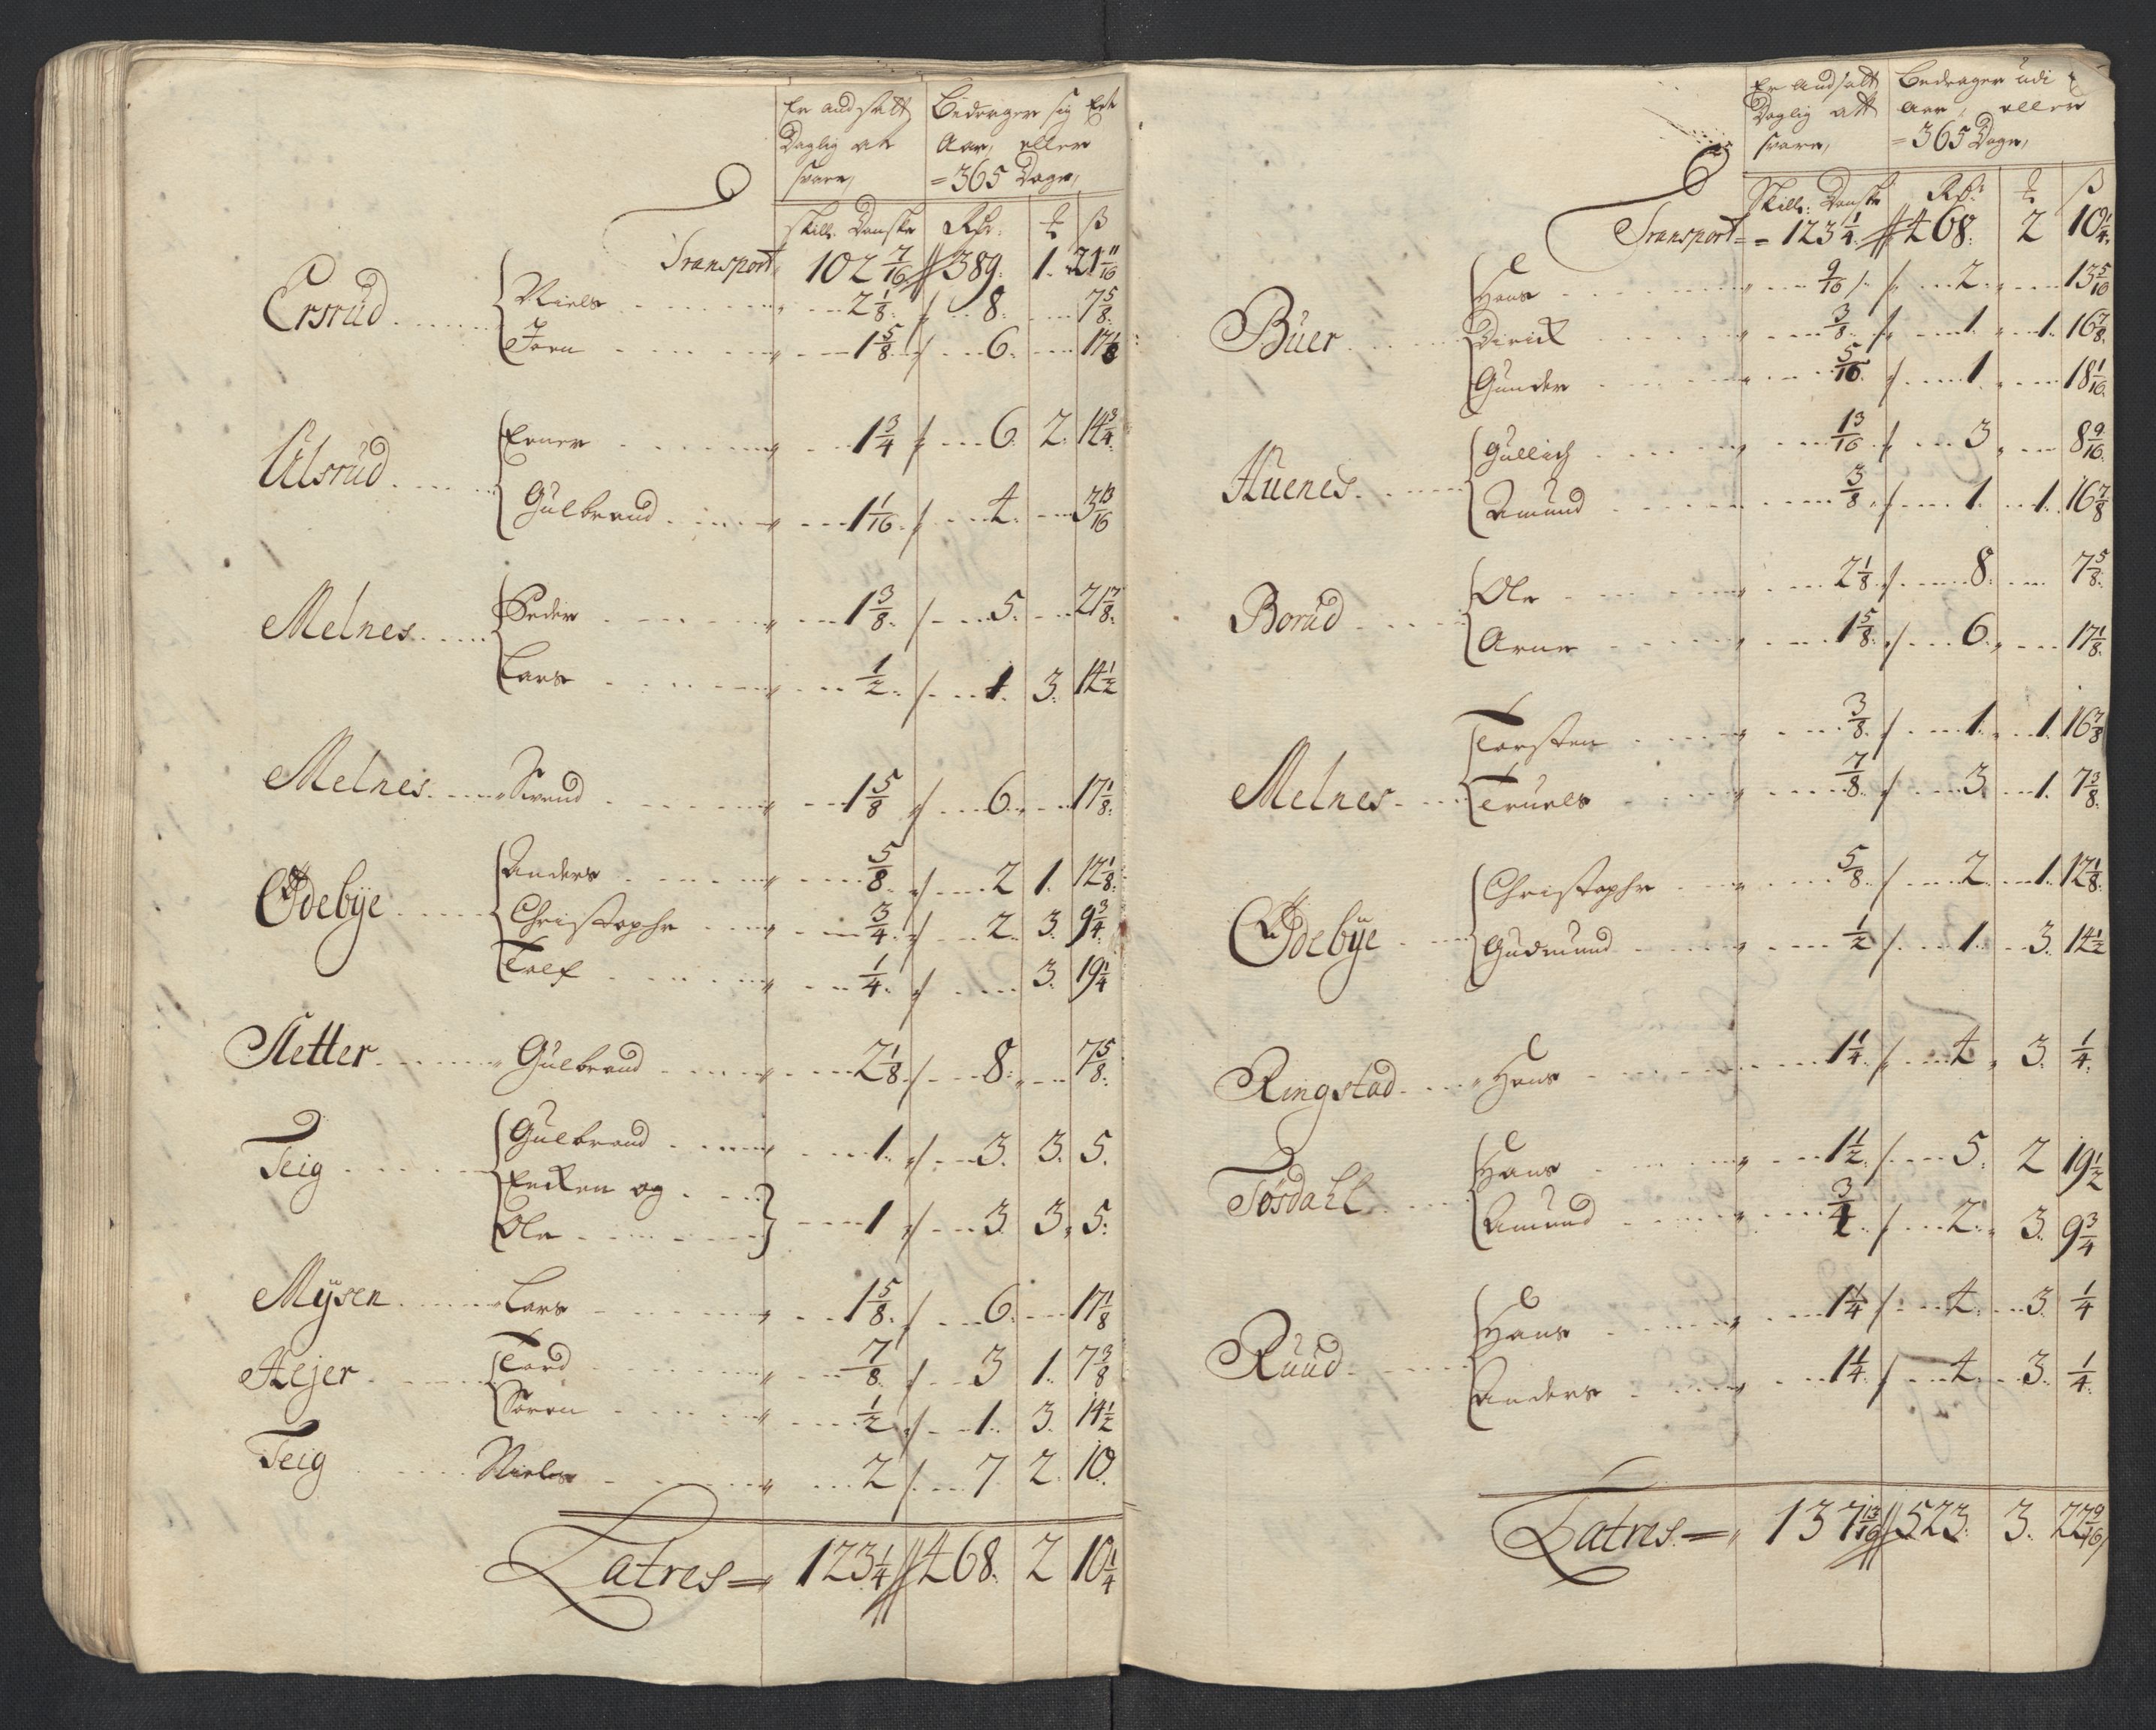 Er and satt Bedrager sig Et
Daglig at Aar, eller
svare, = 365 Dage,
skill: Danske Rdr: ß
Transport 102 7/16 389. 1. 21 11/16
Ersrud Niels 2 1/8. 8. 7 5/8.
Joen 1 5/8. 6. 17 1/8
Ulsrud Ener 1 3/4 6. 2. 14 3/4.
Gulbrand 1 1/16. 4. 3 13/16
Melnes Peder 1 3/8. 5. 21 7/8.
Lars 1/2. 1. 3. 14 1/2
Melnes Svend 1 5/8 6. 17 1/8.
Ødebÿe Anders 5/8. 2 1. 12 1/8.
Christopher 3/4. 2. 3. 9 3/4.
Tolf 1/4. 3. 19 1/4
Sletter Gulbrand 2 1/8. 8. 7 5/8.
Teig Gulbrand 1. 3. 3. 5.
Encken og
Ole 1 3. 3. 5.
Mÿsen Lars 1 5/8. 6. 17 1/8
Hejer Tord 7/8. 3 1. 7 3/8
Søren 1/2 1. 3. 14 1/2
Teig Niels 2 7 2. 10.
Latres = 123 1/4 468. 2 10 1/4
Er and satt Bedrager udi
Daglig att Aar, eller
svare, = 365 Dage,
Skill: Danske Rdr: ß
Transport = 123 1/4. 468. 2 10 1/4.
Büer Hans 9/16 2. 13 5/16
Dirich 3/8. 1. 1. 16 7/8.
Gunder 5/16. 1. 18 1/16.
Huenes Gullich 13/16 3 8 9/16.
Amund 3/8 1. 1. 16 7/8
Borud Ole 2 1/8. 8. 7 5/8.
Arne 1 5/8. 6. 17 1/8.
Melnes Torsten 3/8. 1. 1. 16 7/8
Truels 7/8. 3. 1. 7 3/8.
Ødebÿe Christopher 5/8. 2. 1. 12 1/8.
Gudmund 1/2 1. 3. 14 1/2
Ringstad Hans 1 1/4. 4 3. 1/4.
Tosdahl Hans 1 1/2. 5. 2 19 1/2
Amund 3/4 2. 3. 9 3/4
Ruud Hans 1 1/4 4. 3. 1/4
Anders 1 1/4. 4. 3. 1/4.
Latres = 137 13/16 523. 3. 22 9/16